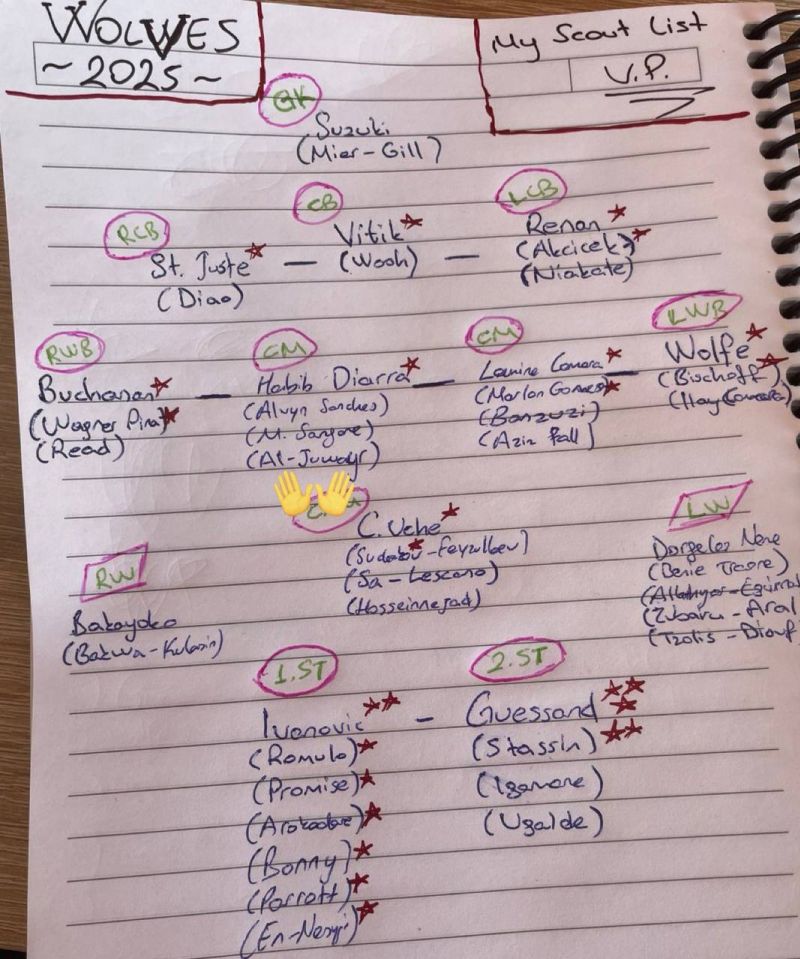 WOLVES
~ 2025 ~
My Scout List
V.P.
GK
Suzuki
(Mier - Gill)
RCB
CB
LCB
St. Juste — Vitik — Renan
(Diao)
(Wooh)
(Akcicek)
(Niakate)
RWB
CM
CM
LWB
Buchanan — Habib Diarra — Lamine Camara — Wolfe
(Wagner Pina)
(Read)
(Alvyn Sanches)
(M. Sangare)
(Al-Juwayr)
(Marlon Gomes)
(Banzuzi)
(Aziz Fall)
(Bischoff)
RW
Bakayoko
C. Uche
(Sa - Lescano)
(Hosseinnejad)
LW
Dorgeles Nene
(Benie Traore)
(Zubaru - Aral
(Tzolis - Diouf)
1.ST
2.ST
Ivanovic — Guessand
(Romulo)
(Promise)
(Arokodare)
(Bonny)
(Parrott)
(En-Nesyri)
(Stassin)
(Igamane)
(Ugalde)